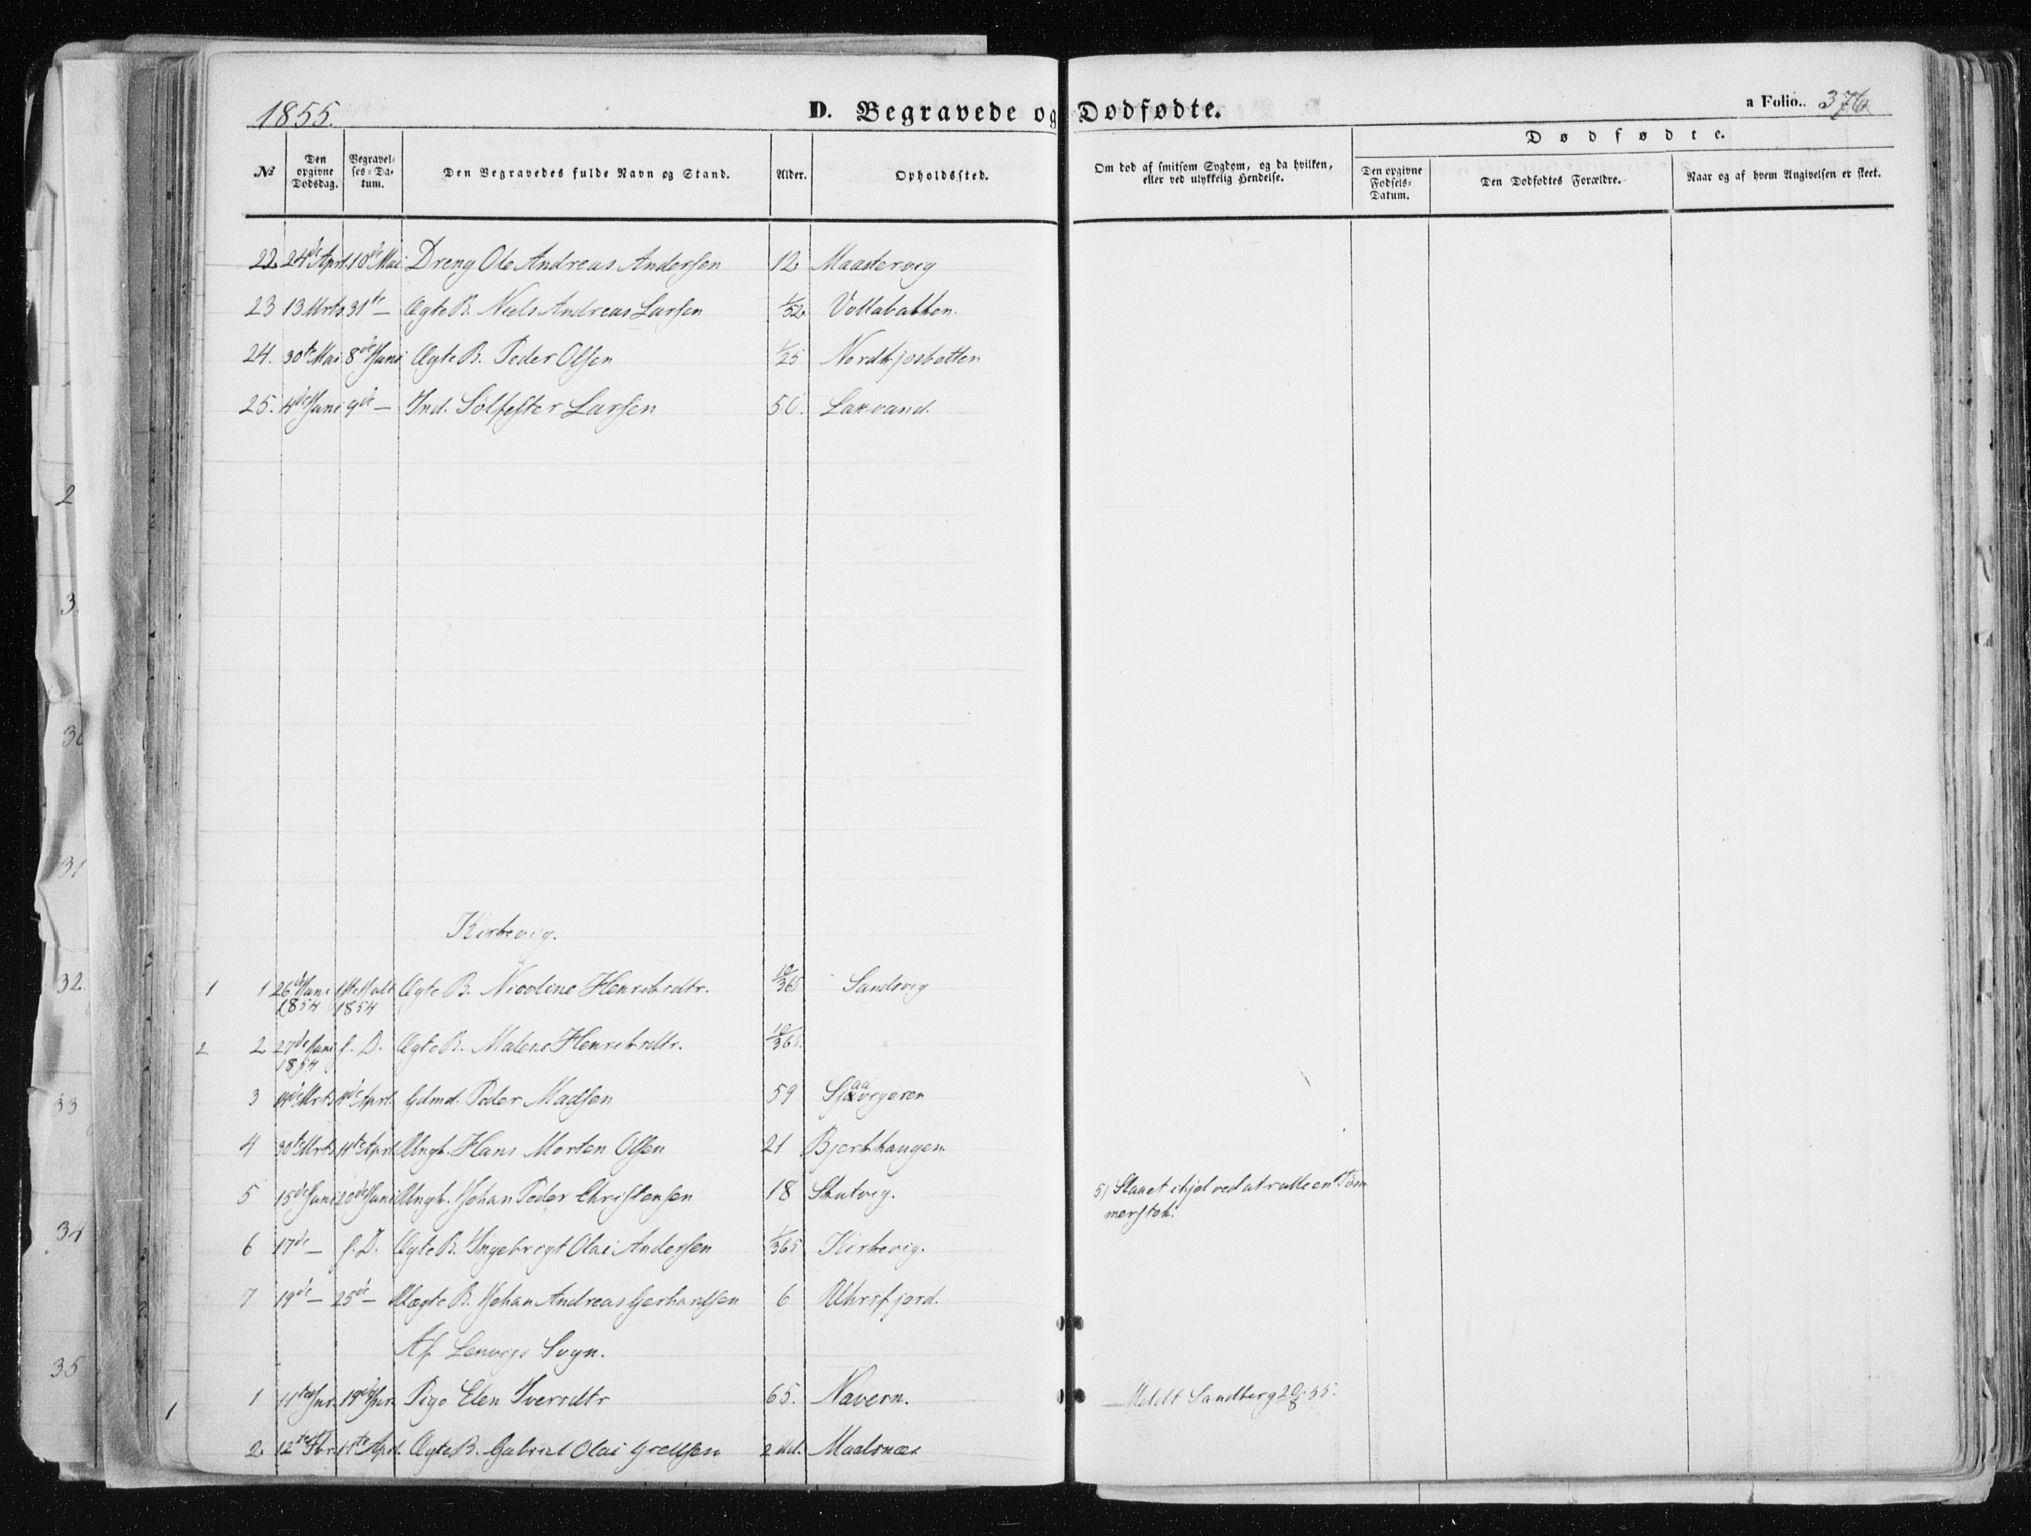 1855.
D. Begravede og Dødfødte.
a Folio.. 376.
Dødfødte.
№
Den opgivne Dødsdag.
Begravelses-Datum.
Den Begravedes fulde Navn og Stand.
Alder.
Opholdssted.
Om død af smitsom Sygdom, og da hvilken, eller ved ulykkelig Hendelse.
Den opgivne Fødsels-Datum.
Den Dødfødtes Forældre.
Naar og af hvem Angivelsen er skeet.
22. 24de Aprl. 10de Mai Dreng Ole Andreas Andersen 12
23 13 Mrts 31te — Ægte B. Niels Andreas Larsen 1/52
24. 30te Mai 8de Juni Ægte B. Peder Olsen 1/25 Nordkjosbotten
25. 4de Juni 9de — Ind. Sølfester Larsen 50. Laxvand.
Kirkevig.
1 1 26de Juni 1854 1ste 1854 Ægte B. Nicoline Henrikdtr. 10/365 Sandvig
2 2 27de Juni 1854 f. D. Ægte B. Malene Henrikdtr. 10/365.
3 Mrts Aprl. Gdmd. Peder Madsen 59
4 30te Mrts 11te Aprl. Ungk. Hans Morten Olsen 21 Bjerkhaugen
5 15de Juni 20de Juni Ungk. Johan Peder Christensen 18
5) Slaaet ihjel ved at rulle en Tømmerstok.
6 17de — f. D. Ægte B. Ingebregt Olai Andersen 1/365 Kirkevig.
7 19de — 25de — Uægte B. Johan Andreas Gerhardsen 6
Af Lenvigs Sogn.
1 1 11te Jnr. 19de Jnr. Pige Elen Iversdtr 65. Navern.
Meldt Sandberg 20/8 55.
2. 12te Fbr. 11te Aprl. Ægte B. Gabriel Olai 2 Md. Maalsnæs
2
3
30
31
32
33
34
35